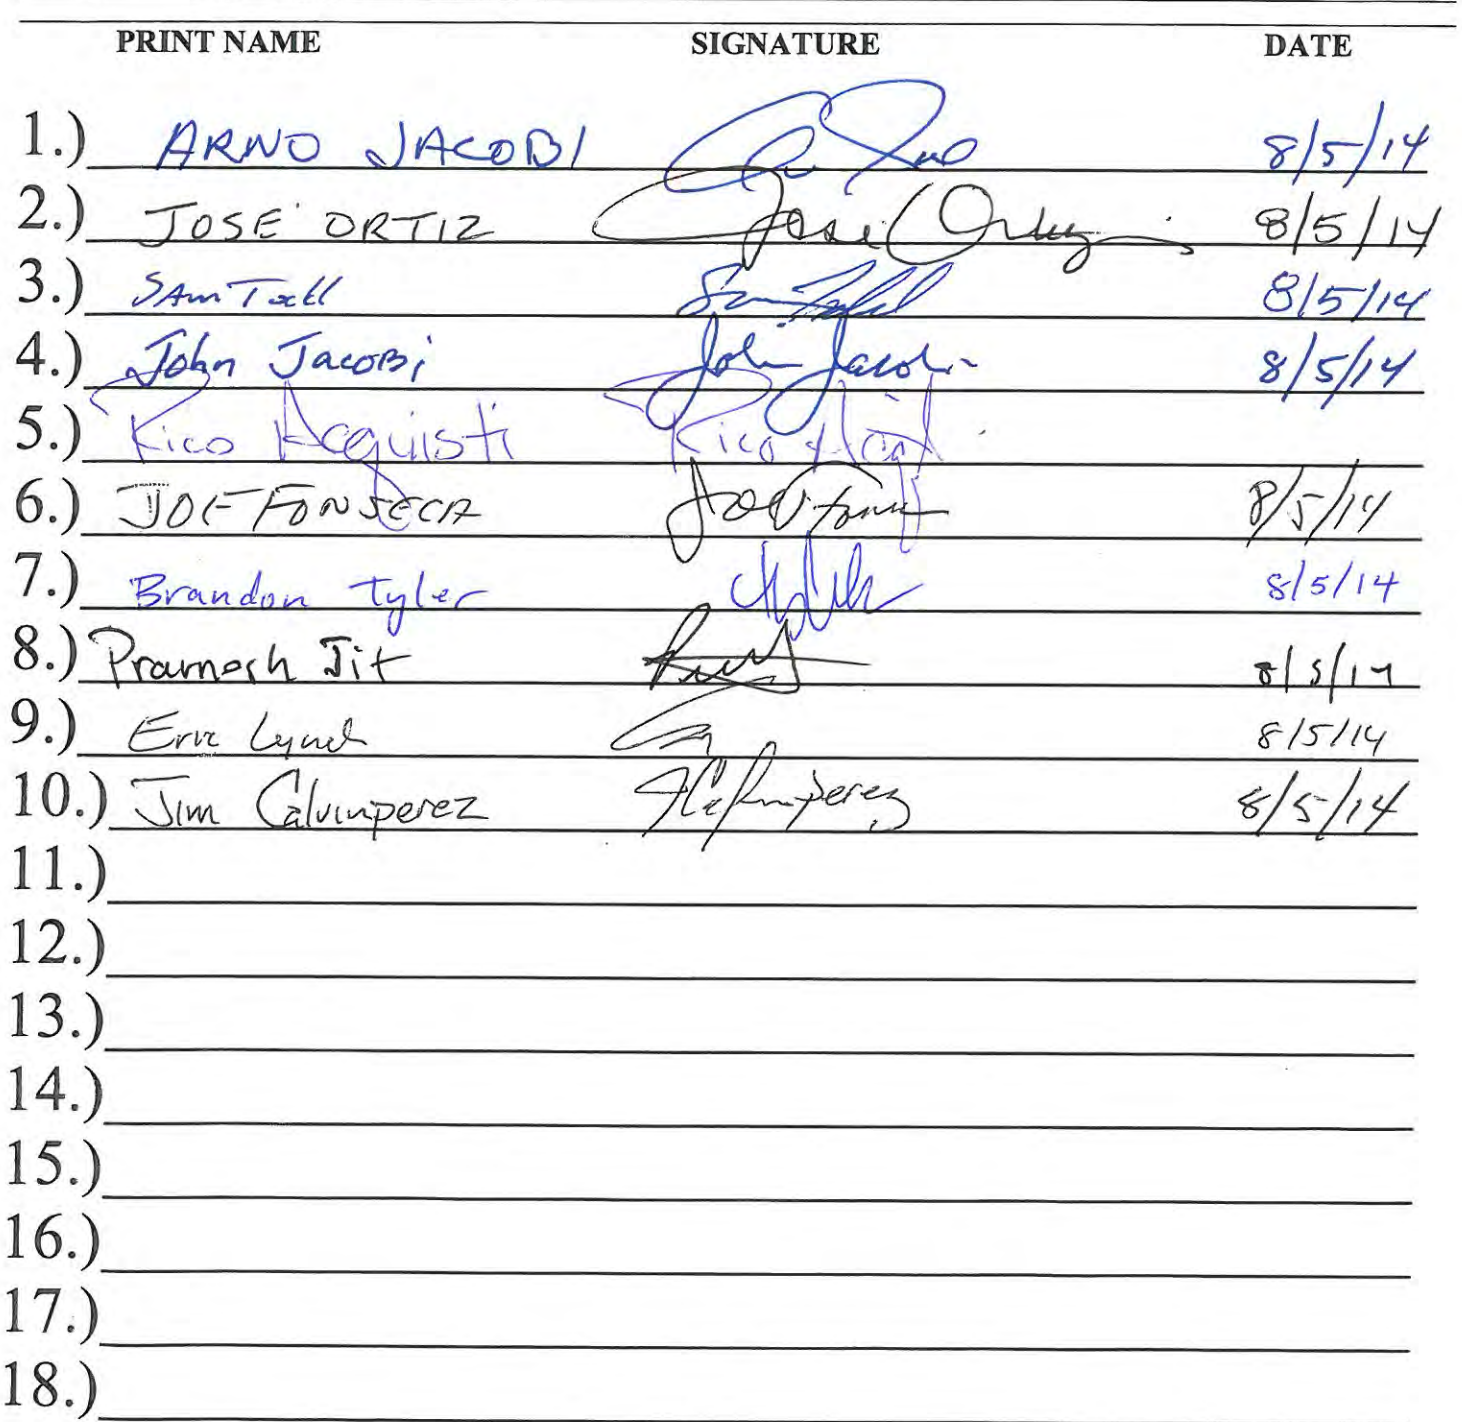 PRINT NAME SIGNATURE DATE
1.) ARNO JACOBI 8/5/14
2.) JOSE ORTIZ Jose Ortiz 8/5/14
3.) SAM 8/5/14
4.) John JacoBi John Jacobi 8/5/14
5.) Rico Acquisti Rico
6.) JOE FONSECA Joe 8/5/14
7.) Brandon Tyler 8/5/14
8.) Pramesh Jit 8/5/14
9.) Eric Lynch 8/5/14
10.) Jim Calvinperez 8/5/14
11.)
12.)
13.)
14.)
15.)
16.)
17.)
18.)